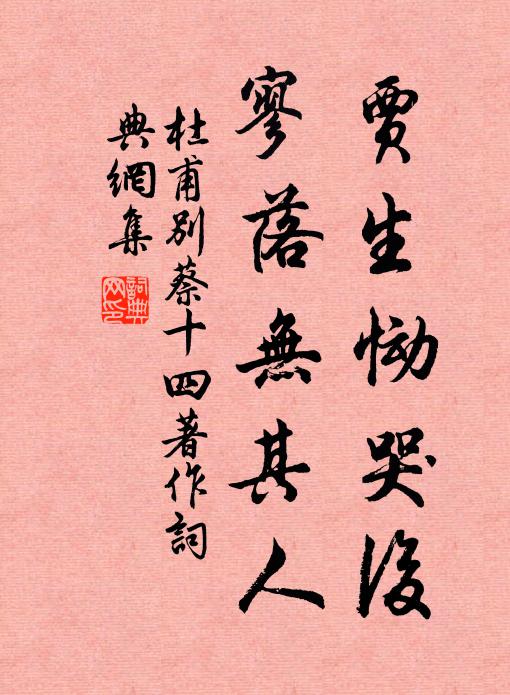 賈生慟哭後
寥落無其人
杜甫別蔡十四著作詞
典網集
詞典网印